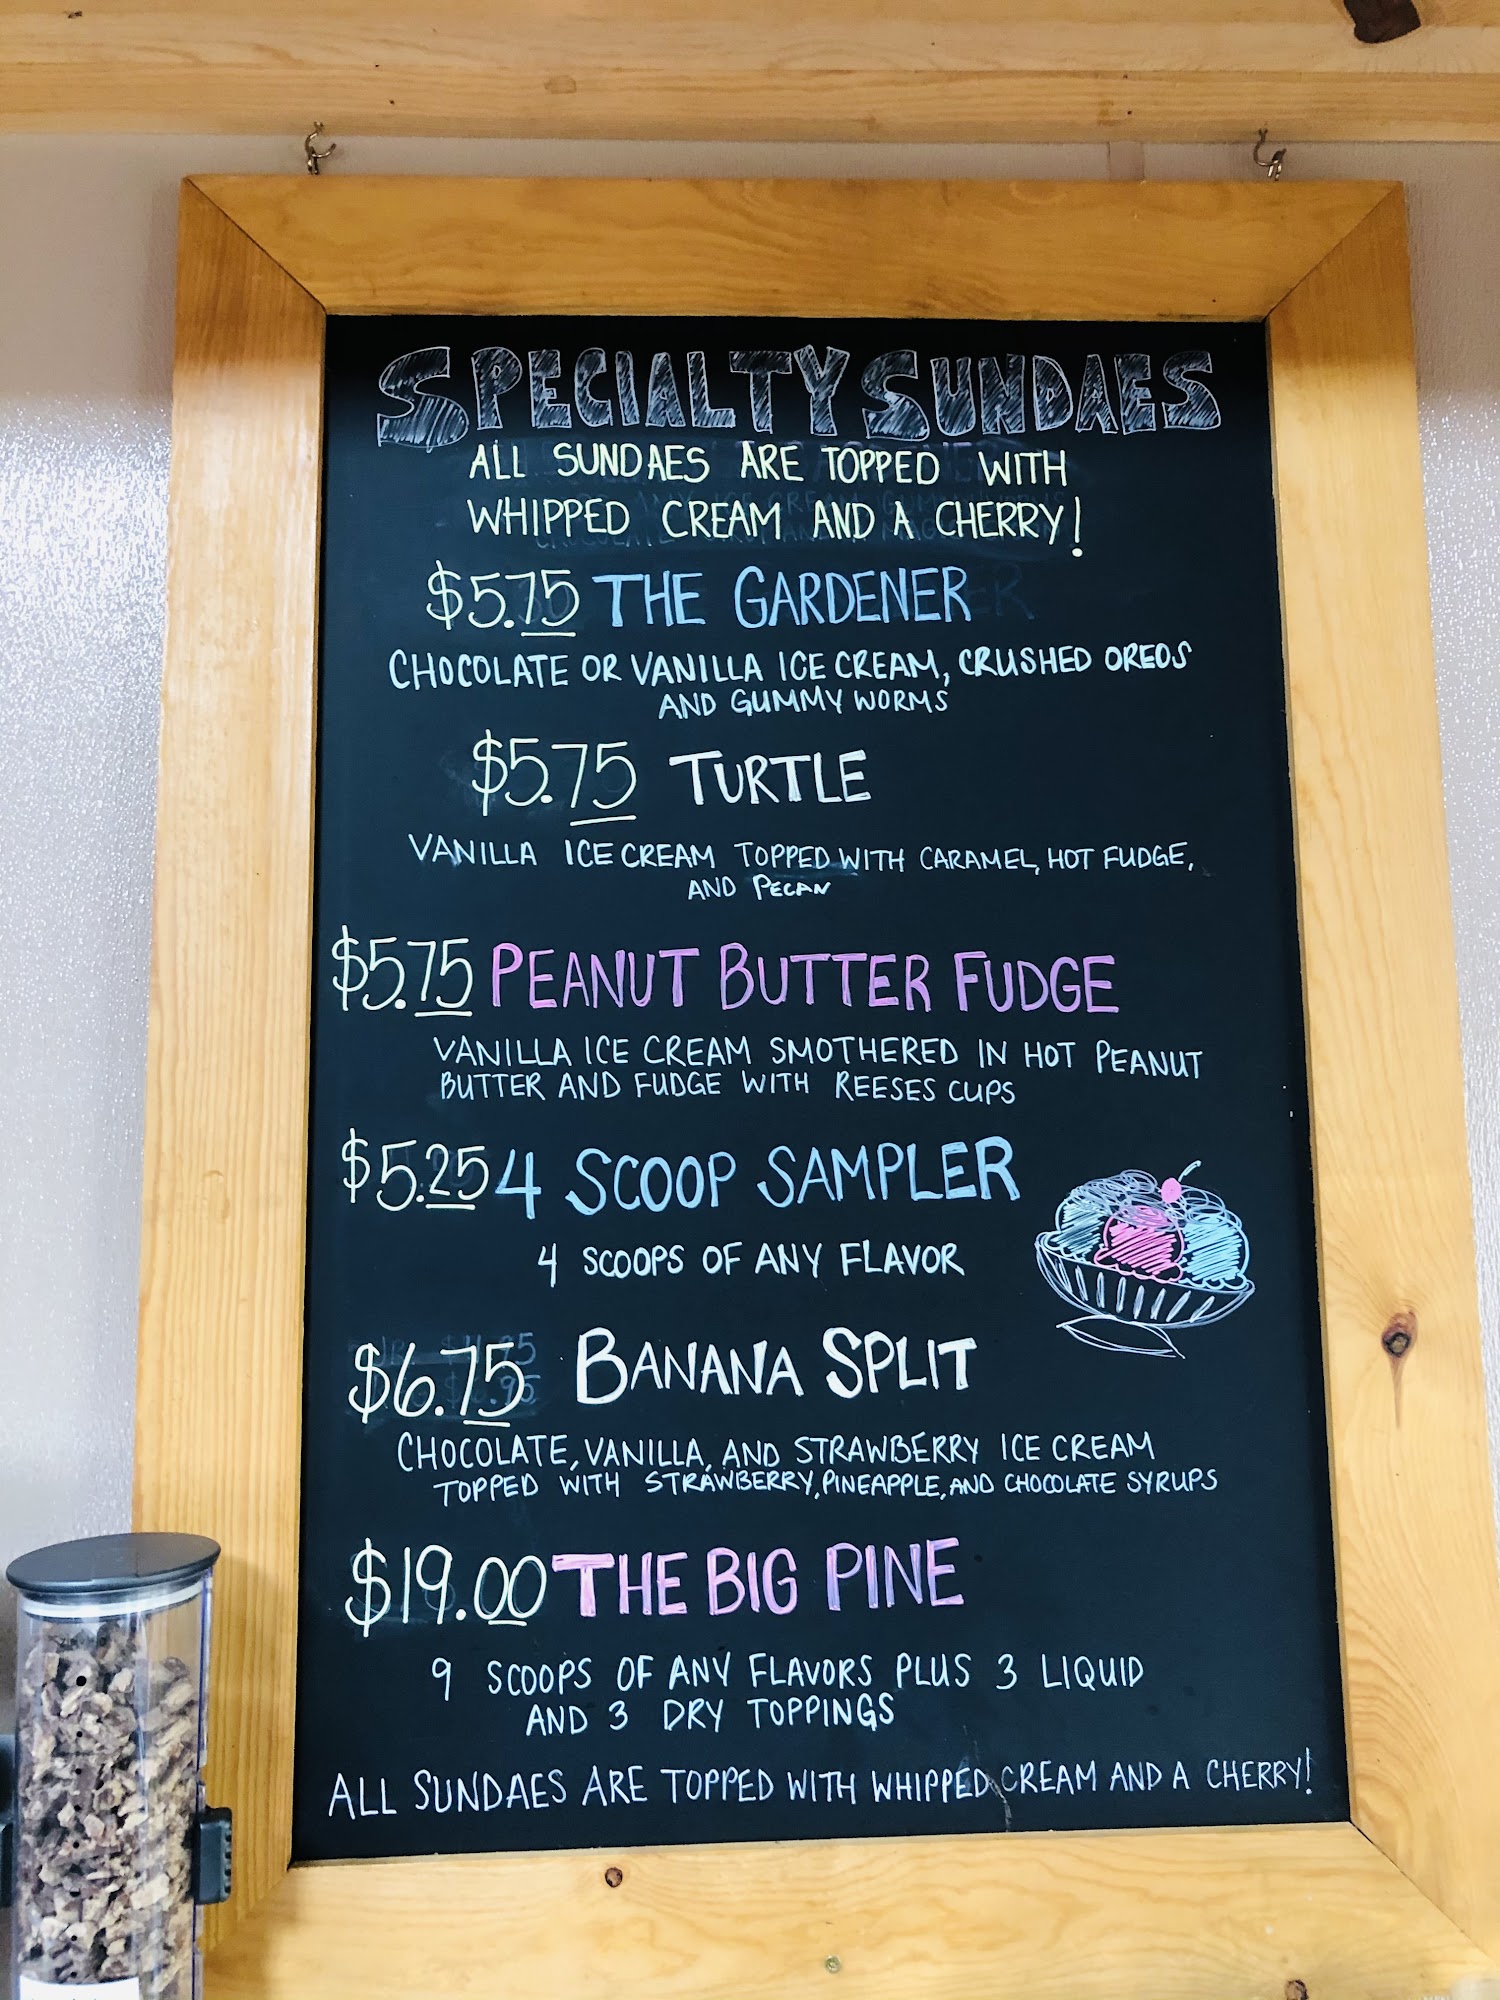 SPECIALTY SUNDAES
ALL SUNDAES ARE TOPPED WITH
WHIPPED CREAM AND A CHERRY!
$5.75 THE GARDENER
CHOCOLATE OR VANILLA ICE CREAM, CRUSHED OREOS
AND GUMMY WORMS
$5.75 TURTLE
VANILLA ICE CREAM TOPPED WITH CARAMEL, HOT FUDGE,
AND PECAN
$5.75 PEANUT BUTTER FUDGE
VANILLA ICE CREAM SMOTHERED IN HOT PEANUT
BUTTER AND FUDGE WITH REESES CUPS
$5.25 4 SCOOP SAMPLER
4 SCOOPS OF ANY FLAVOR
$6.75 BANANA SPLIT
CHOCOLATE, VANILLA, AND STRAWBERRY ICE CREAM
TOPPED WITH STRAWBERRY, PINEAPPLE, AND CHOCOLATE SYRUPS
$19.00 THE BIG PINE
9 SCOOPS OF ANY FLAVORS PLUS 3 LIQUID
AND 3 DRY TOPPINGS
ALL SUNDAES ARE TOPPED WITH WHIPPED CREAM AND A CHERRY!